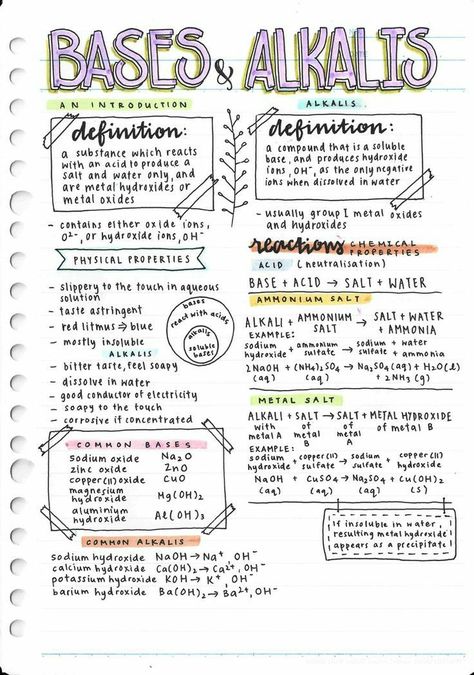 BASES & ALKALIS
AN INTRODUCTION
definition:
a substance which reacts
with an acid to produce a
salt and water only, and
are metal hydroxides or
metal oxides
- contains either oxide ions,
O²⁻, or hydroxide ions, OH⁻
PHYSICAL PROPERTIES
- slippery to the touch in aqueous
solution
- taste astringent
- red litmus ⇒ blue
- mostly insoluble
bases
react with acids
alkalis
soluble
bases
ALKALIS
- bitter taste, feel soapy
- dissolve in water
- good conductor of electricity
- soapy to the touch
- corrosive if concentrated
COMMON BASES
sodium oxide Na₂O
zinc oxide ZnO
copper(II) oxide CuO
magnesium
hydroxide Mg(OH)₂
aluminium
hydroxide Al(OH)₃
COMMON ALKALIS
sodium hydroxide NaOH → Na⁺, OH⁻
calcium hydroxide Ca(OH)₂ → Ca²⁺, OH⁻
potassium hydroxide KOH → K⁺, OH⁻
barium hydroxide Ba(OH)₂ → Ba²⁺, OH⁻
ALKALIS
definition:
a compound that is a soluble
base, and produces hydroxide
ions, OH⁻, as the only negative
ions when dissolved in water
- usually group I metal oxides
and hydroxides
reactions CHEMICAL
PROPERTIES
ACID (neutralisation)
BASE + ACID → SALT + WATER
AMMONIUM SALT
ALKALI + AMMONIUM SALT → SALT + WATER + AMMONIA
EXAMPLE:
sodium hydroxide + ammonium sulfate → sodium sulfate + water + ammonia
2NaOH + (NH₄)₂SO₄ → Na₂SO₄(aq) + H₂O(l)
(aq) (aq) + 2NH₃(g)
METAL SALT
ALKALI + SALT → SALT + METAL HYDROXIDE
with of of of metal B
metal A metal metal
B A
EXAMPLE:
sodium hydroxide + copper(II) sulfate → sodium sulfate + copper(II) hydroxide
NaOH + CuSO₄ → Na₂SO₄ + Cu(OH)₂
(aq) (aq) (aq) (s)
if insoluble in water,
resulting metal hydroxide
appears as a precipitate!